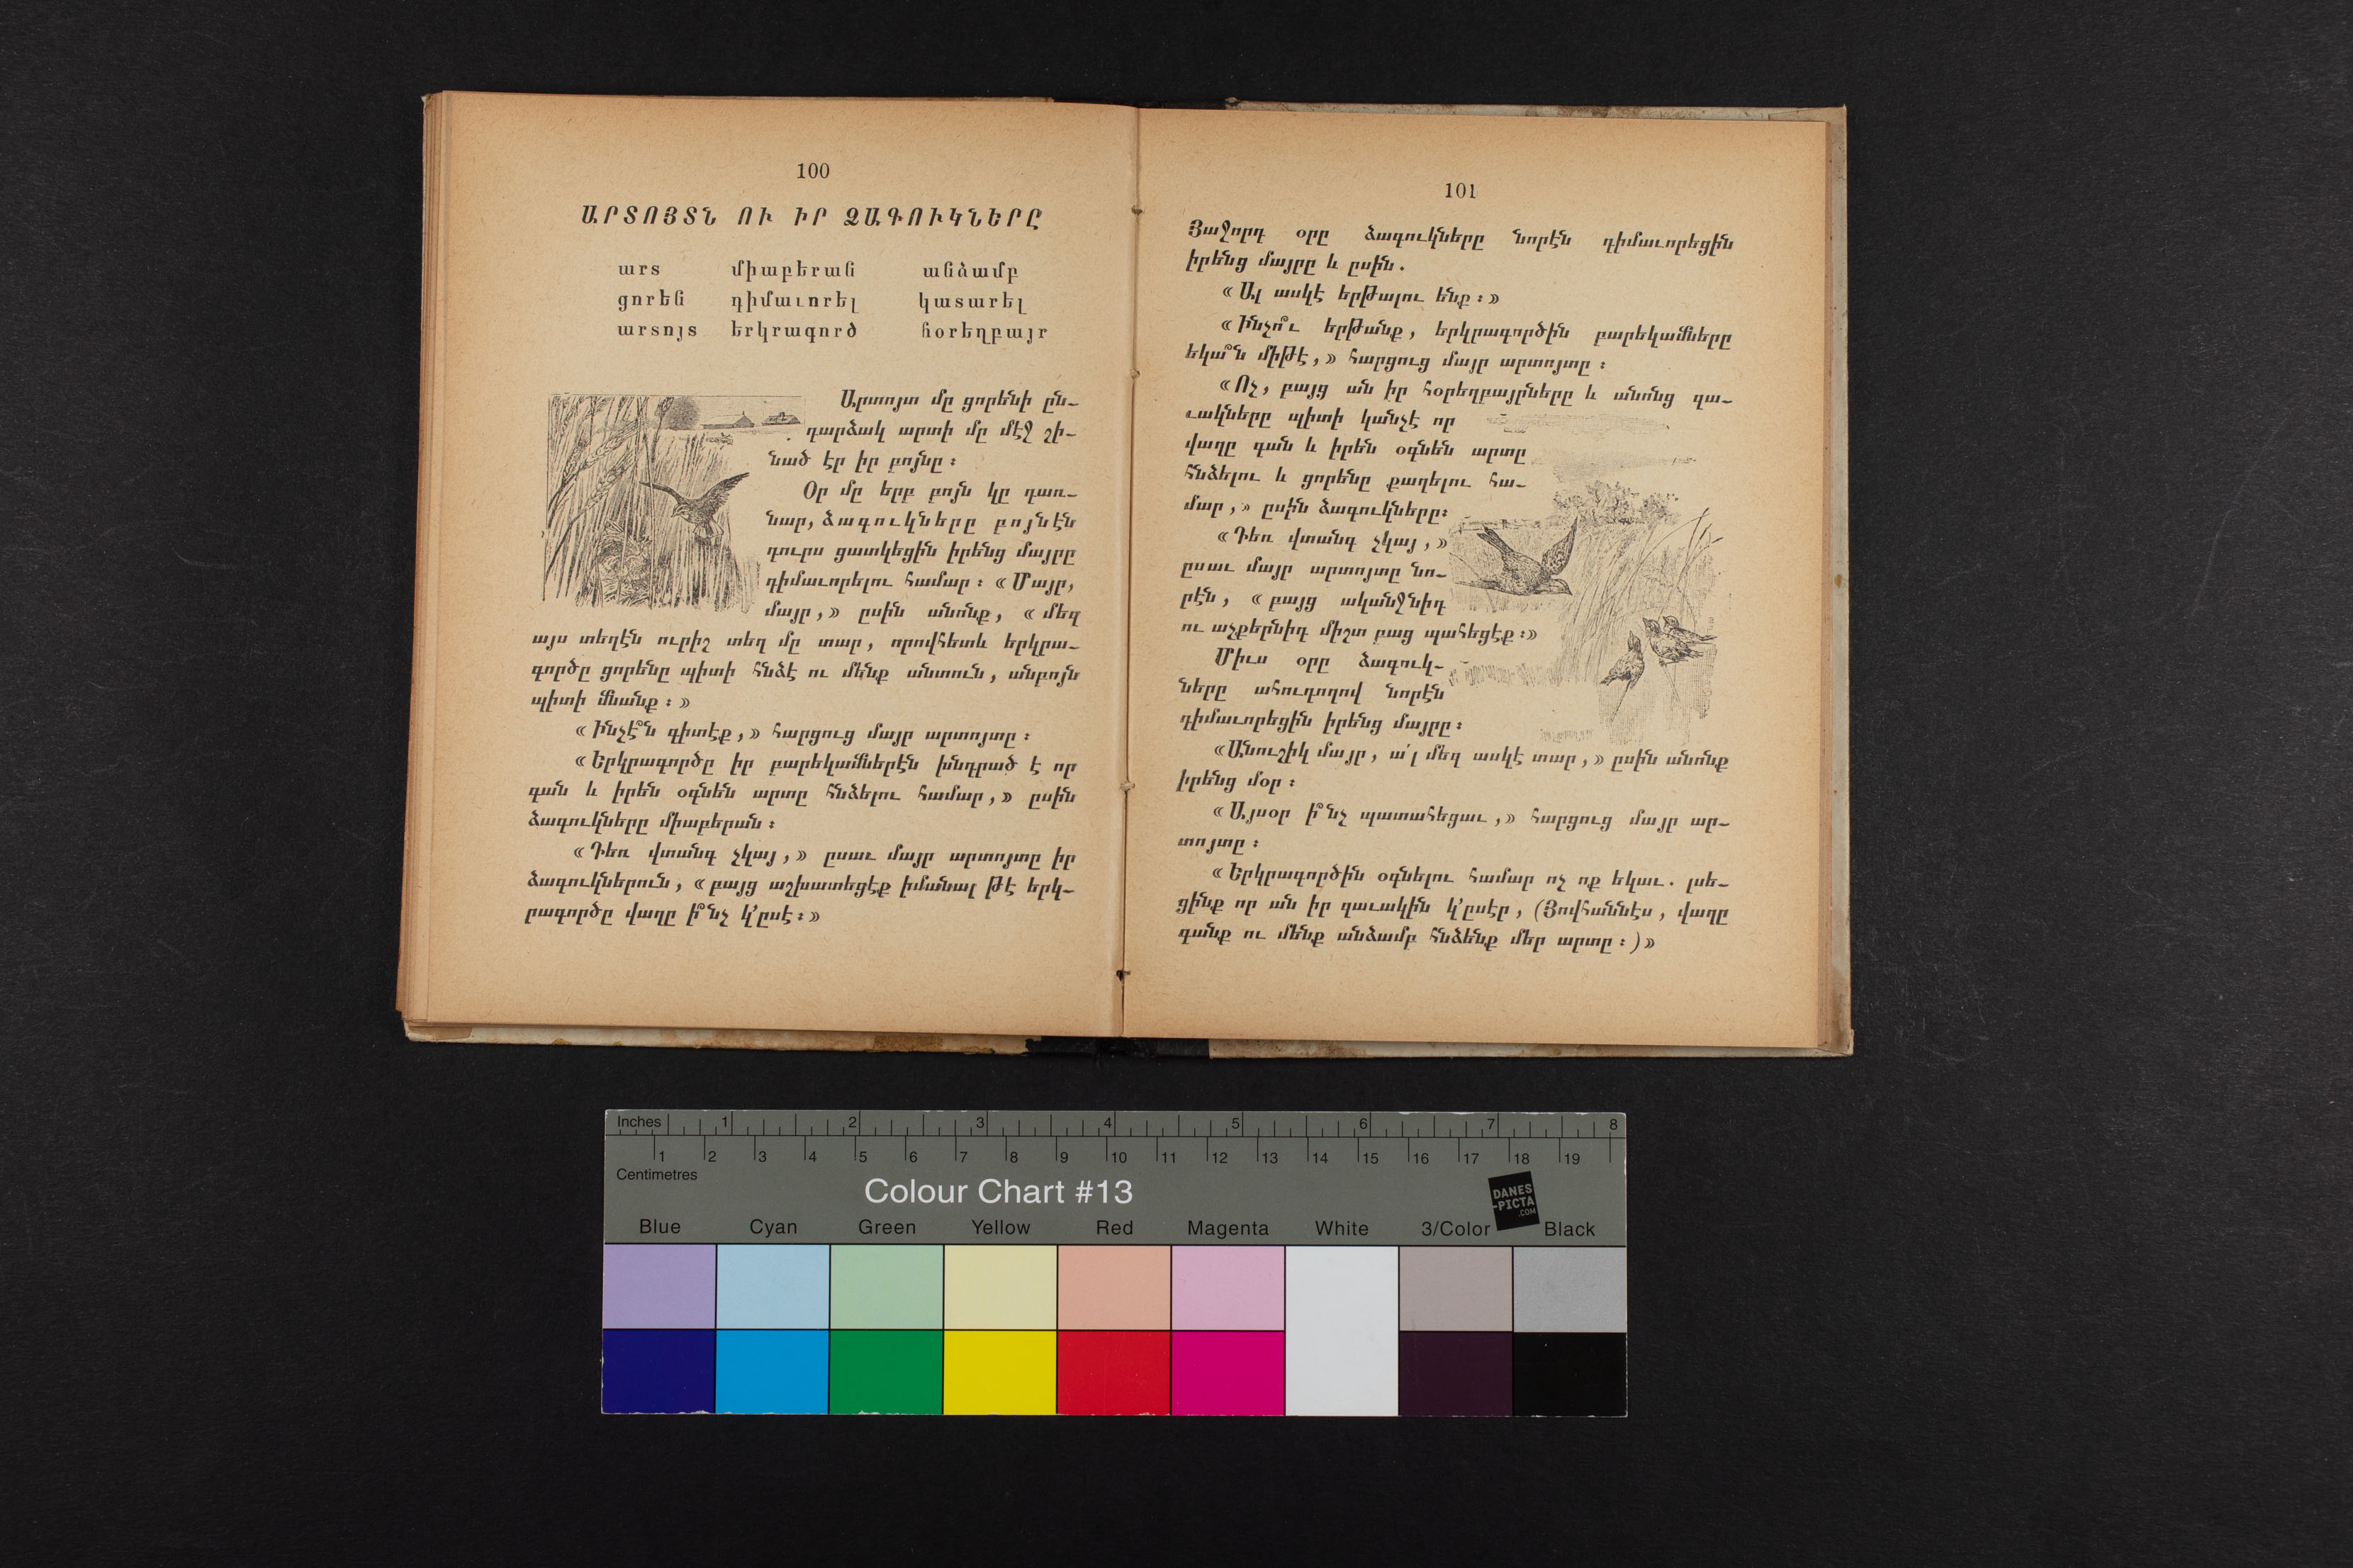 100
ԱՐՏՈՅՏՆ ՈՒ ԻՐ ՁԱԳՈՒԿՆԵՐԸ
արտ միաբերան անձամբ
ցորեն դիմաւորել կատարել
արտոյտ երկրագործ հօրեղբայր
Արտոյտ մը ցորենի ըն-
դարձակ արտի մը մէջ շի-
նած էր իր բոյնը։
Օր մը երբ բոյն կը դառ-
նար, ձագուկները բոյնէն
դուրս ցատկեցին իրենց մայրը
դիմաւորելու համար։ «Մայր,
մայր,» ըսին անոնք, «մեզ
այս տեղէն ուրիշ տեղ մը տար, որովհետև երկրա-
գործը ցորենը պիտի հնձէ ու մենք անտուն, անբոյն
պիտի մնանք։»
«Ինչէ՞ն գիտէք,» հարցուց մայր արտոյտը։
«Երկրագործը իր բարեկամներէն խնդրած է որ
գան և իրեն օգնեն արտը հնձելու համար,» ըսին
ձագուկները միաբերան։
«Դեռ վտանգ չկայ,» ըսաւ մայր արտոյտը իր
ձագուկներուն, «բայց աշխատեցէք իմանալ թէ երկ-
րագործը վաղը ի՞նչ կ՚ըսէ։»
101
Յաջորդ օրը ձագուկները նորէն դիմաւորեցին
իրենց մայրը և ըսին.
«Ալ ասկէ երթալու ենք։»
«Ինչո՞ւ երթանք, երկրագործին բարեկամները
եկա՞ն միթէ,» հարցուց մայր արտոյտը։
«Ոչ, բայց ան իր հօրեղբայրները և անոնց զա-
ւակները պիտի կանչէ որ
վաղը գան և իրեն օգնեն արտը
հնձելու և ցորենը քաղելու հա-
մար,» ըսին ձագուկները։
«Դեռ վտանգ չկայ,»
ըսաւ մայր արտոյտը նո-
րէն, «բայց ականջնիդ
ու աչքերնիդ միշտ բաց պահեցէք։»
Միւս օրը ձագուկ-
ները ահուդողով նորէն
դիմաւորեցին իրենց մայրը։
«Անուշիկ մայր, ա՛լ մեզ ասկէ տար,» ըսին անոնք
իրենց մօր։
«Այսօր ի՞նչ պատահեցաւ,» հարցուց մայր ար-
տոյտը։
«Երկրագործին օգնելու համար ոչ ոք եկաւ. լսե-
ցինք որ ան իր զաւակին կ՚ըսէր, (Յովհաննէս, վաղը
գանք ու մենք անձամբ հնձենք մեր արտը։)»
Inches 1 2 3 4 5 6 7 8
1 2 3 4 5 6 7 8 9 10 11 12 13 14 15 16 17 18 19
Centimetres
Colour Chart #13
DANES
-PICTA
.COM
Blue Cyan Green Yellow Red Magenta White 3/Color Black